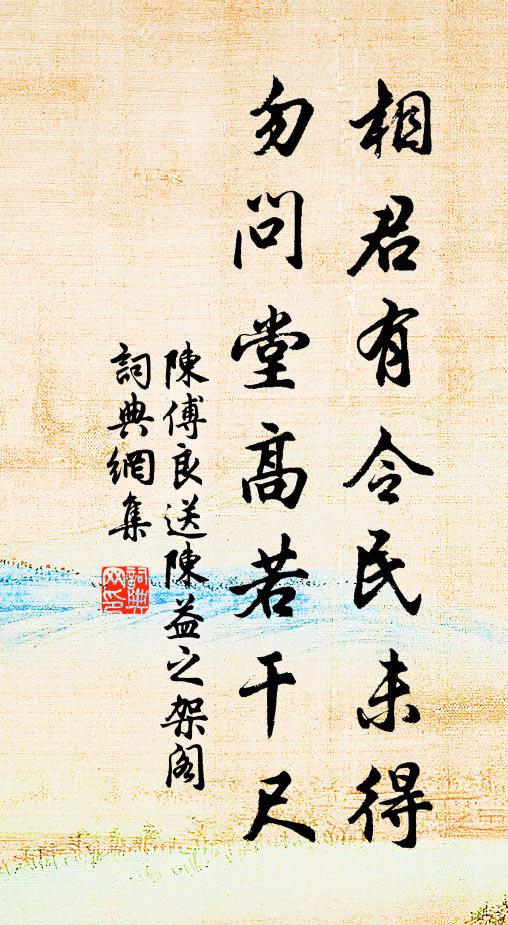 相君有令民未得
勿問堂高若干尺
陳傅良送陳益之架阁
詞典網集